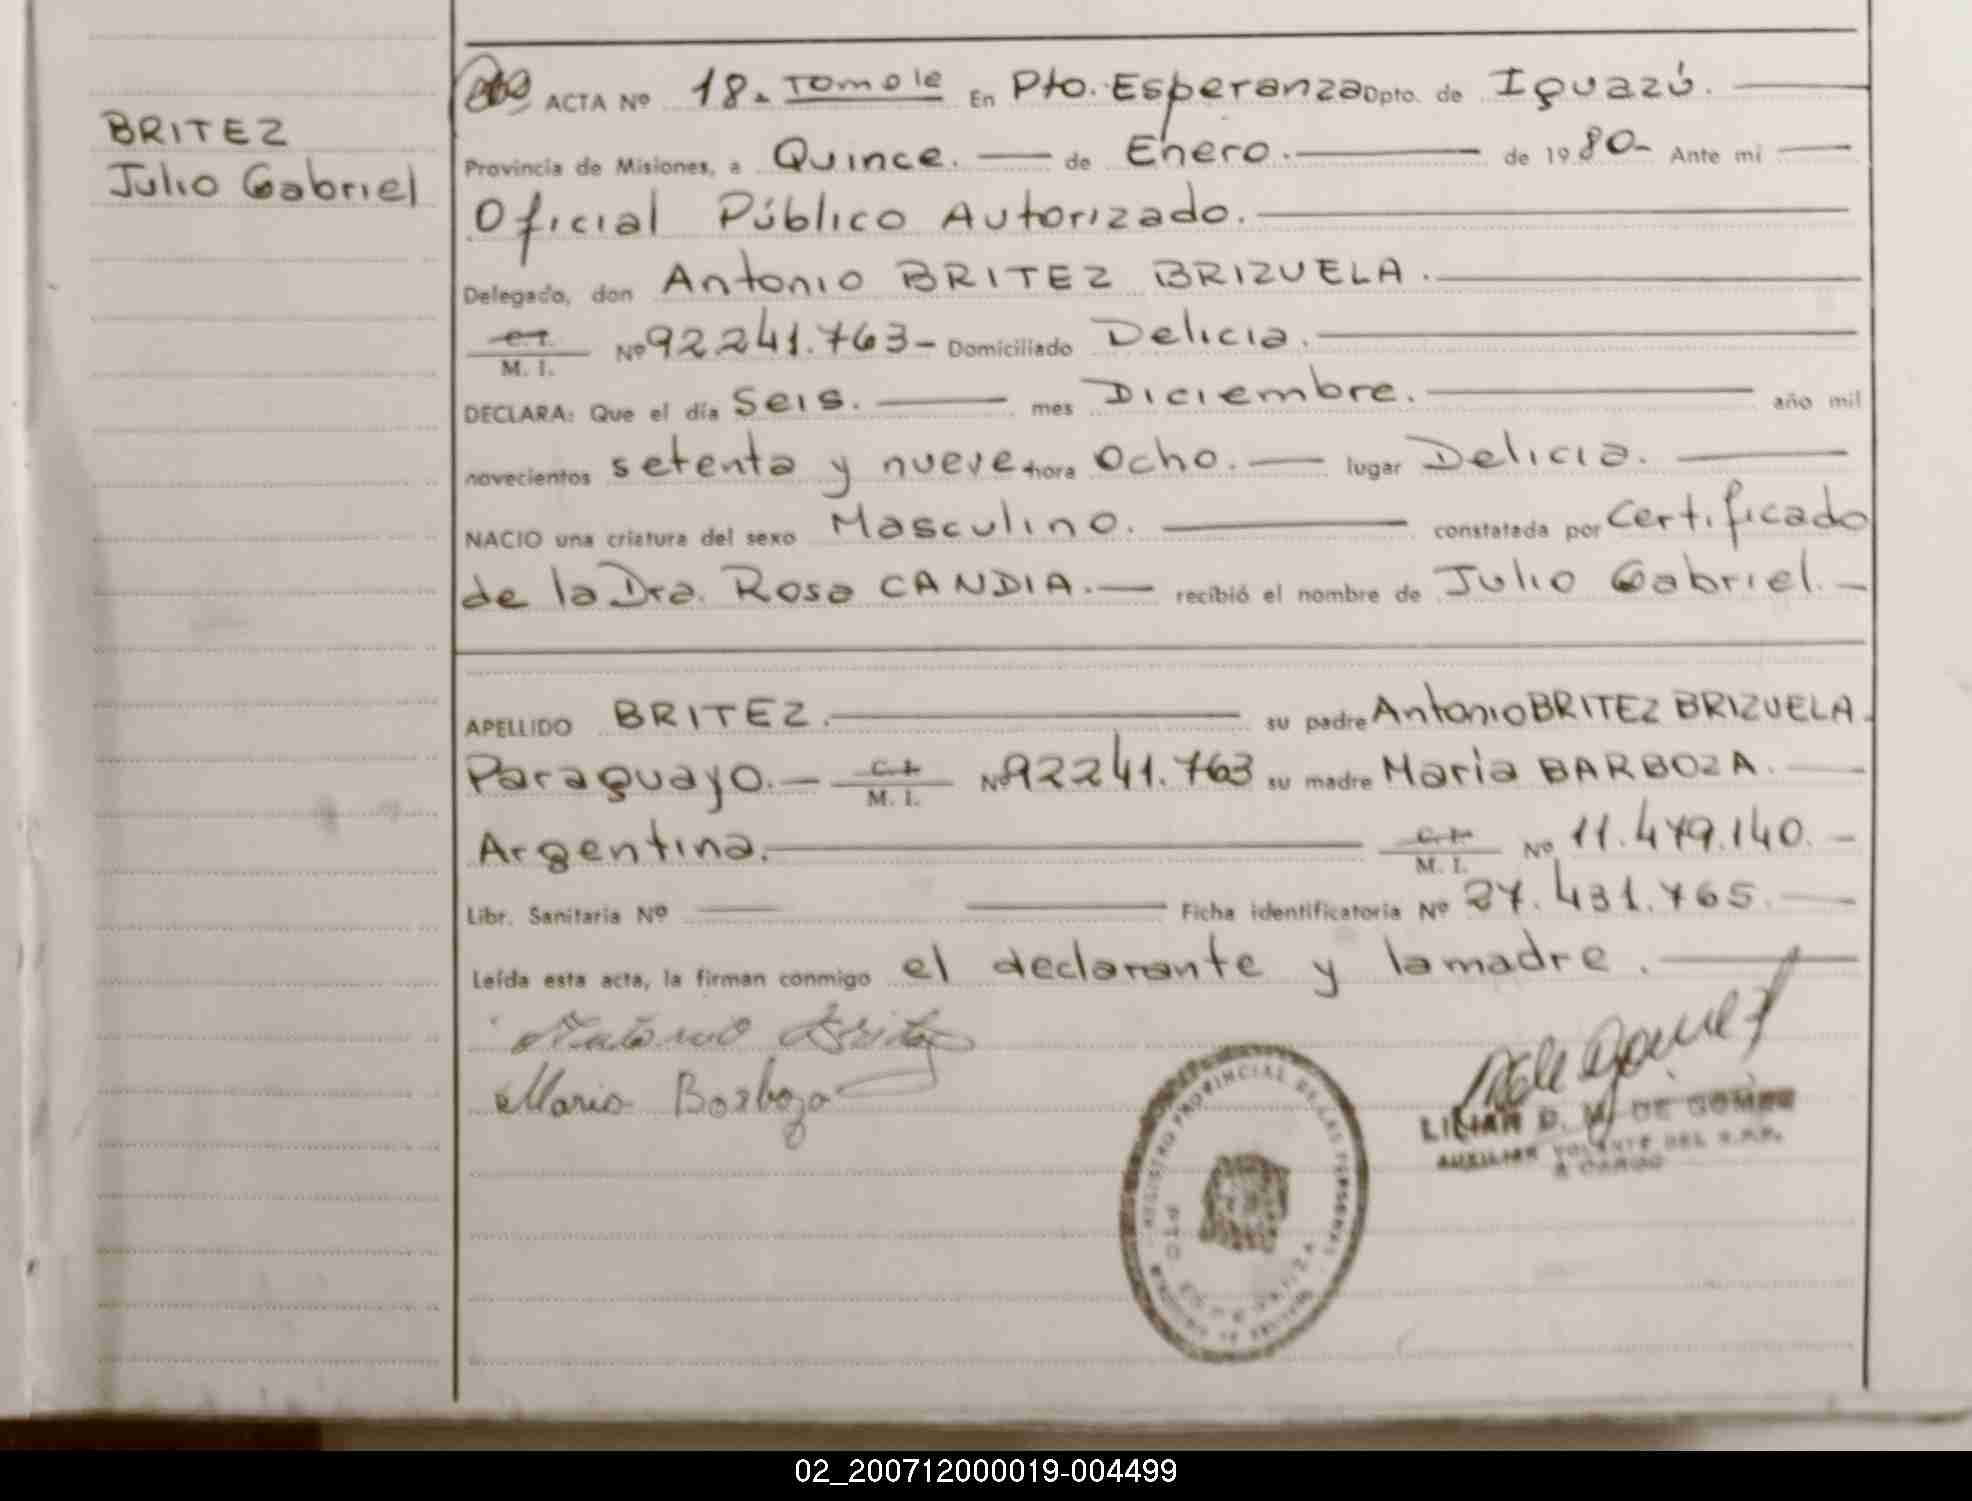 BRITEZ
Julio Gabriel
ACTA Nº 18. Tomo 1e En Pto. Esperanza Dpto. de Iguazú.
Provincia de Misiones, a Quince. de Enero. de 1980- Ante mi
Oficial Público Autorizado.
Delegado, don Antonio BRITEZ BRIZUELA.
C.I.
M. I. Nº 92.241.763- Domiciliado Delicia.
DECLARA: Que el día Seis. mes Diciembre. año mil
novecientos setenta y nueve. hora Ocho. lugar Delicia.
NACIO una criatura del sexo Masculino. constatada por Certificado
de la Dra. Rosa CANDIA. recibió el nombre de Julio Gabriel.
APELLIDO BRITEZ. su padre Antonio BRITEZ BRIZUELA.
Paraguayo. C.I. M. I. Nº 92241.763 su madre Maria BARBOZA.
Argentina. C.I. M. I. Nº 11.479.140.
Libr. Sanitaria Nº Ficha identificatoria Nº 27.431.765.
Leída esta acta, la firman conmigo el declarante y la madre.
Antonio Britez
Maria Barboza
REGISTRO PROVINCIAL DE LAS PERSONAS
PTO ESPERANZA
LILIAN D. M. DE GOMEZ
AUXILIAR VOLANTE DEL R.P.P.
A CARGO
02_200712000019-004499